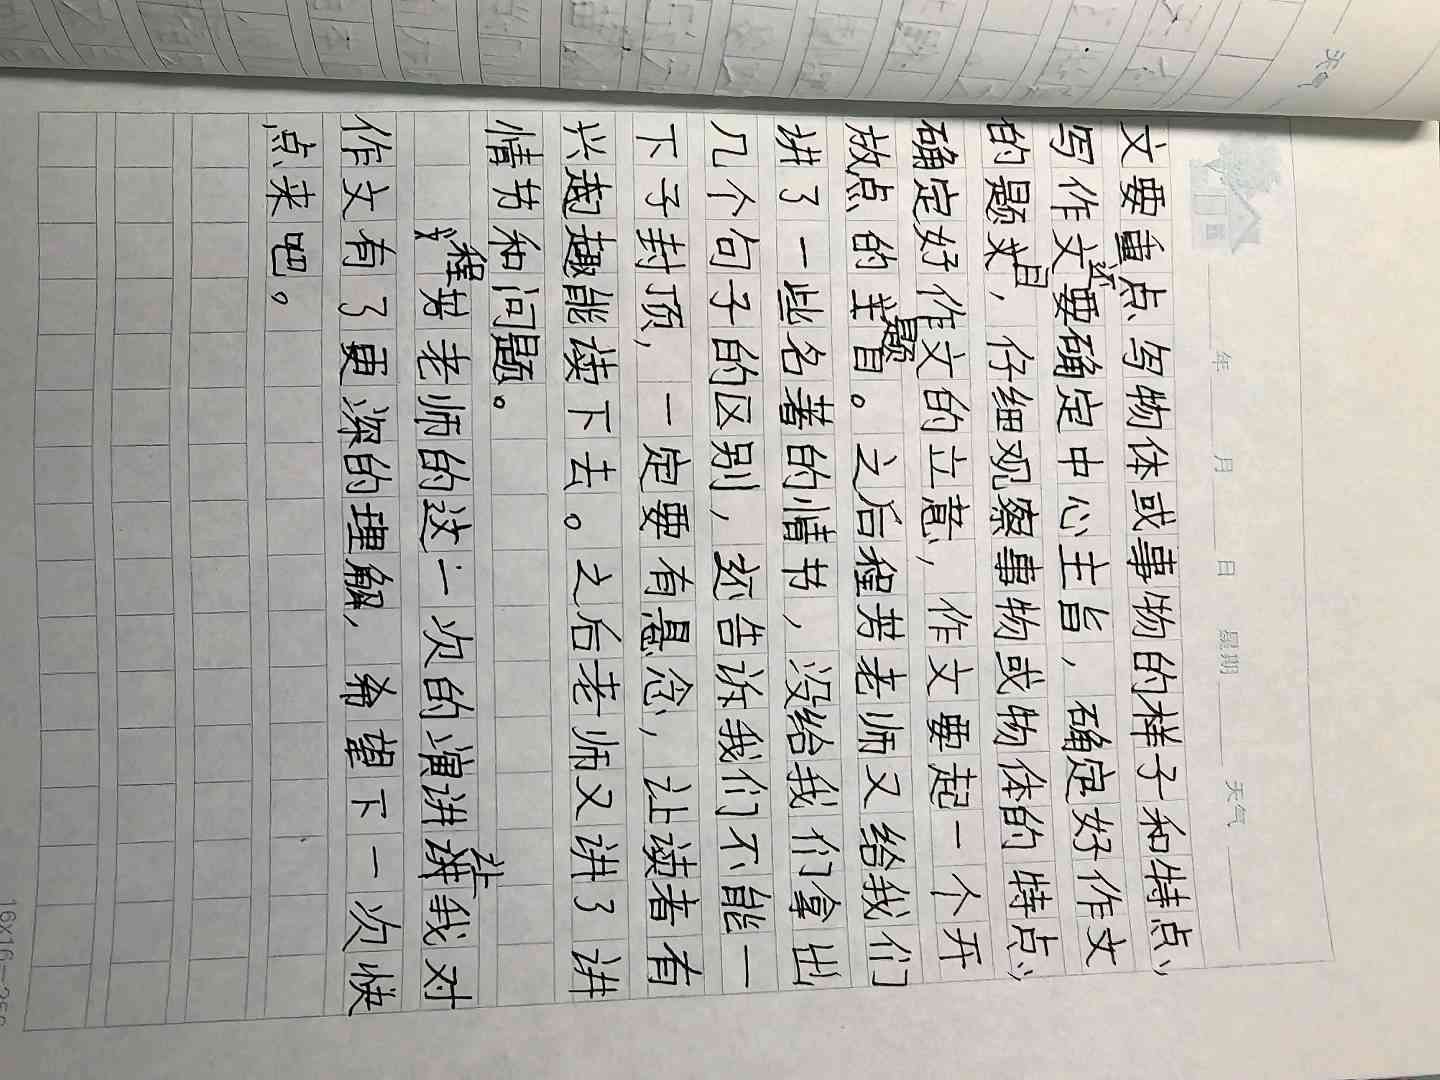 天气
年 月 日 星期 天气
文要重点写物体或事物的样子和特点，
写作文还要确定中心主旨，确定好作文
的题目，仔细观察事物或物体的特点，
确定好作文的立意，作文要起一个开
放点的主题。之后程芳老师又给我们
讲了一些名著的情书，没给我们拿出
几个句子的区别，还告诉我们不能一
下子封顶，一定要有悬念，让读者有
兴趣能读下去。之后老师又讲了讲
情节和问题。
程芳老师的这一次的演讲让我对
作文有了更深的理解，希望下一次快
点来吧。